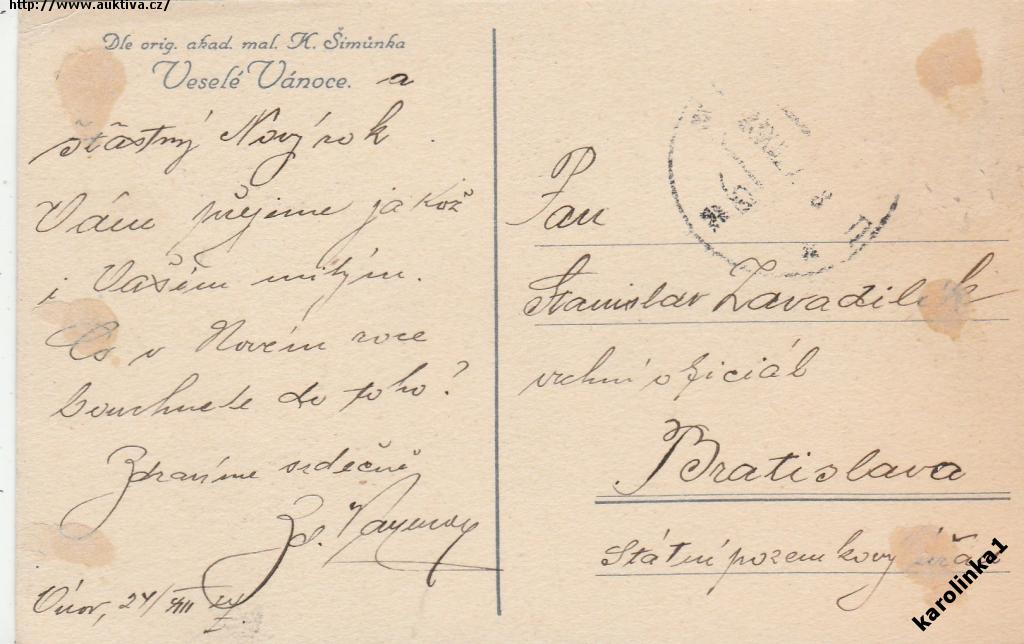 http://www.auktiva.cz/
Dle orig. akad. mal. K. Šimůnka
Veselé Vánoce. a
štastný Nový rok
Vám přejeme jakož
i Vašém milým.
Co v Novém roce
bouchnete do toho?
Zdravíme srdečně
Zd.
Únor, 24/XII
Pan
Stanislav Zavadilík
vrchní oficiál
Bratislava
Státní pozemkový úřad
karolinka1